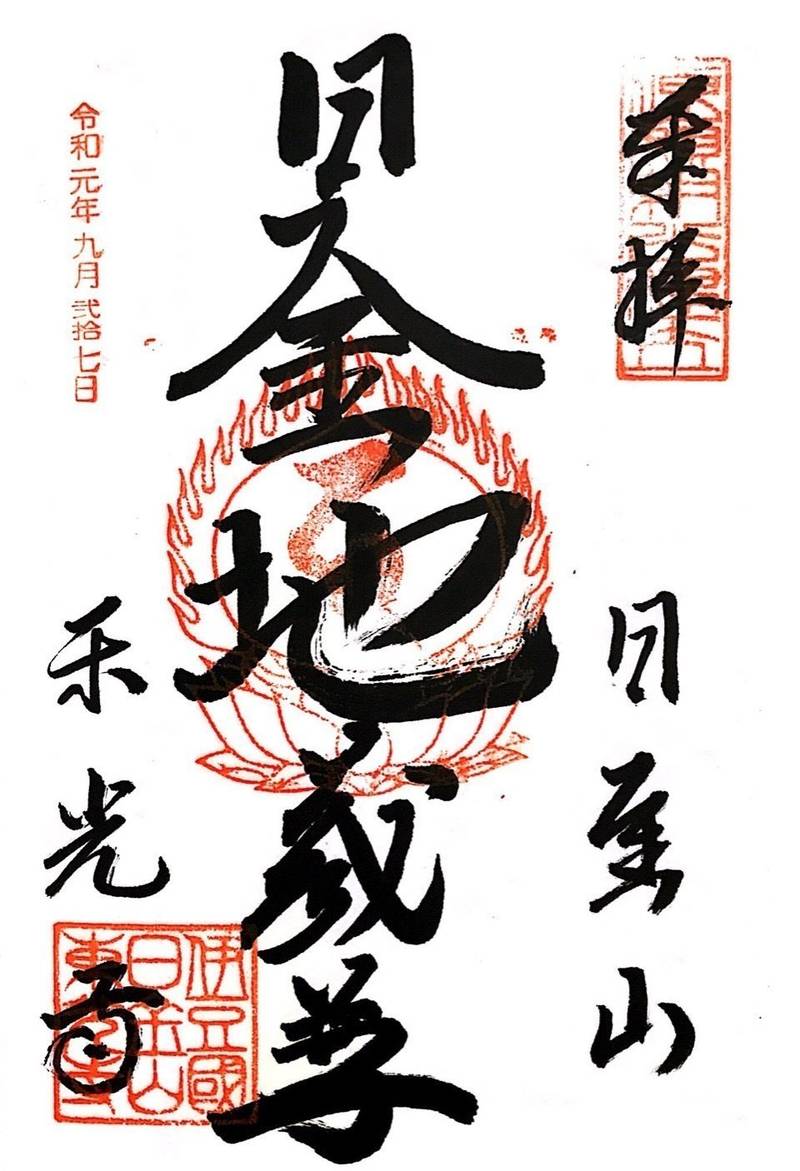 奉拝
日金山
日金地蔵尊
令和元年九月弐拾七日
東光寺
伊豆國
日金山
東光寺